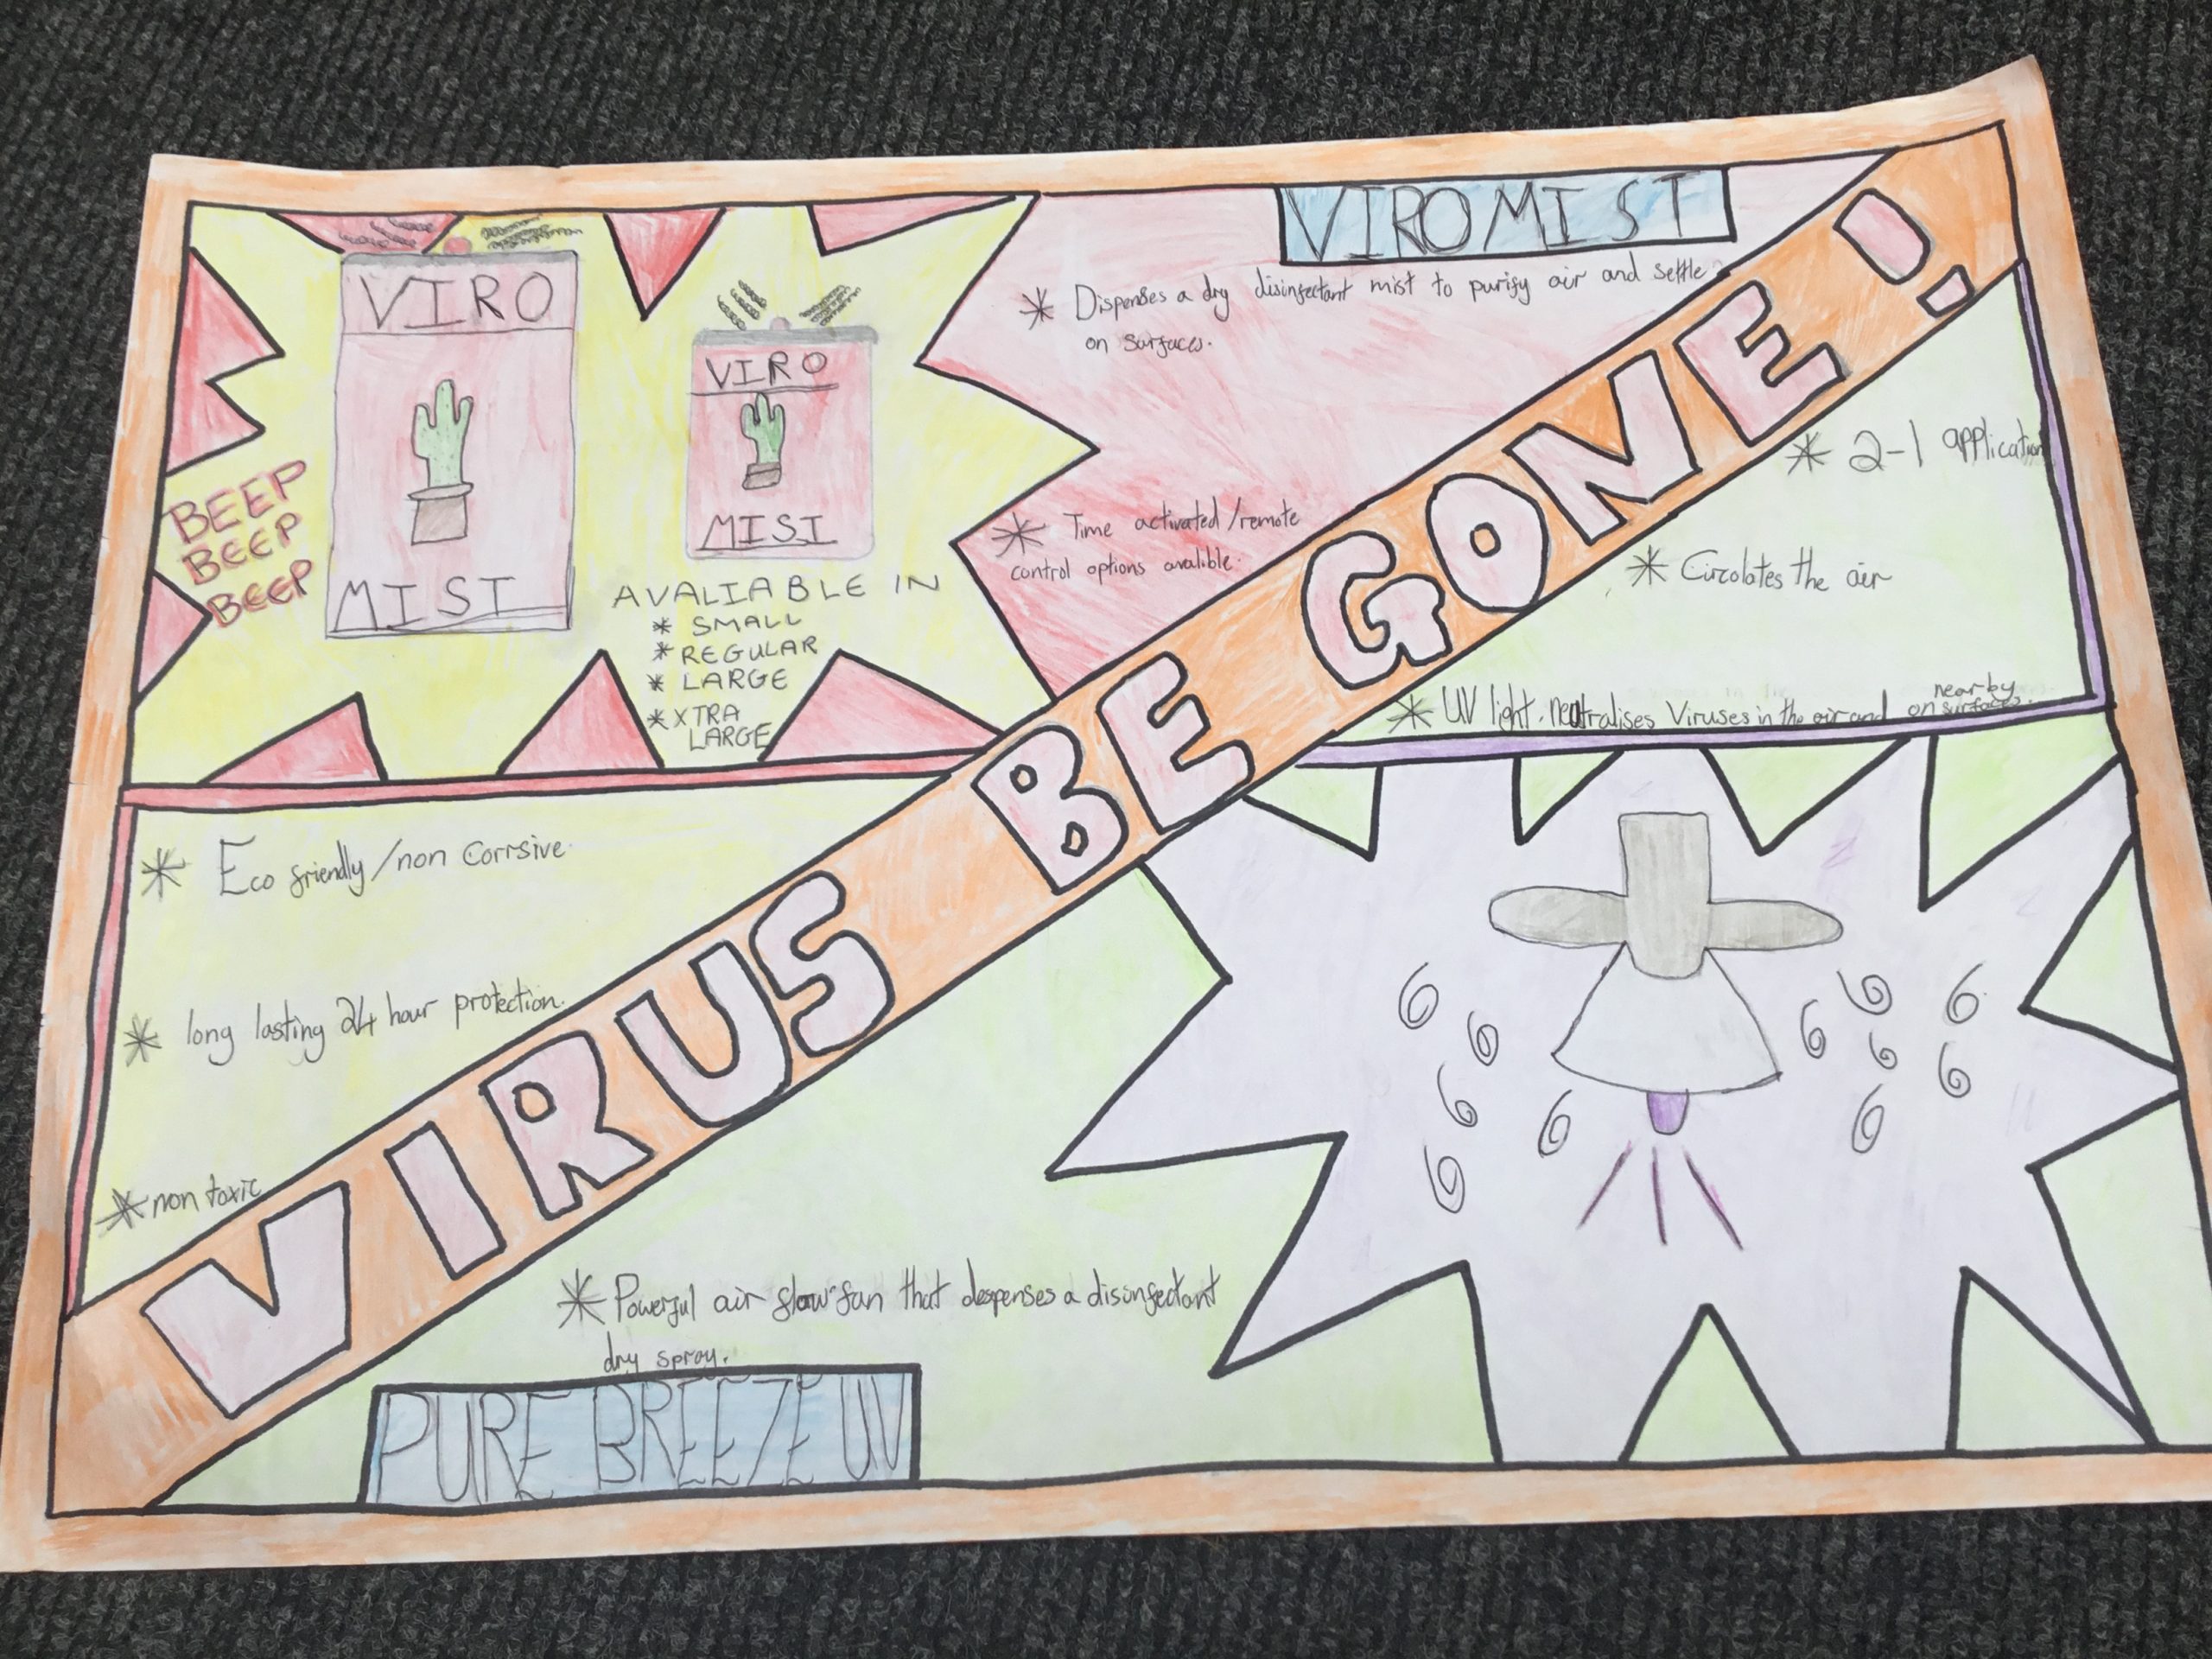 VIRO
MIST
VIRO
MIST
BEEP
BEEP
BEEP
AVALIABLE IN
* SMALL
* REGULAR
* LARGE
* XTRA
LARGE
VIROMIST
* Dispenses a dry disinfectant mist to purify air and settle
on surfaces.
* Time activated/remote
control options avalible.
VIRUS BE GONE!
* 2-1 application
* Circolates the air
* UV light. neutralises Viruses in the air and on nearby
surfaces.
* Eco friendly/non Corrsive
* long lasting 24 hour protection.
* non toxic
* Powerful air flow fan that despenses a disinfectant
dry spray.
PURE BREEZE UV